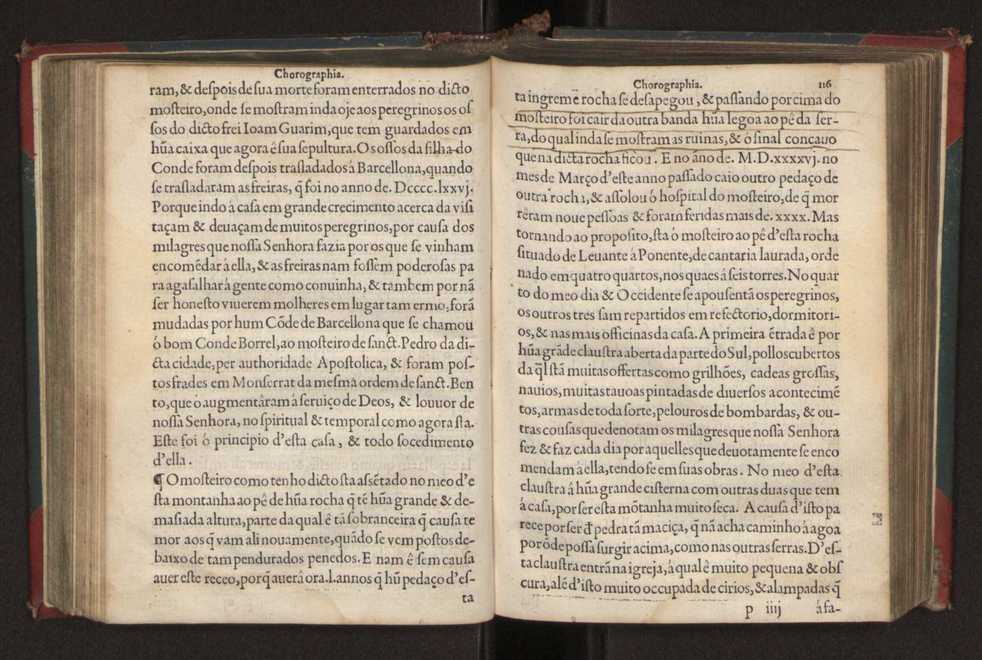 Chorographia.
ram, & despois de sua morte foram enterrados no dicto
mosteiro, onde se mostram inda oje aos peregrinos os os
sos do dicto frei Ioam Guarim, que tem guardados em
hũa caixa que agora ê sua sepultura. Os ossos da filha do
Conde foram despois trasladados à Barcellona, quando
se trasladaram as freiras, q̃ foi no anno de. Dcccc.lxxvj.
Porque indo â casa em grande crecimento acerca da visi
taçam & deuaçam de muitos peregrinos, por causa dos
milagres que nossa Senhora fazia por os que se vinham
encomẽdar â ella, & as freiras nam fossem poderosas pa
ra agasalhar â gente como conuinha, & tambem por nã
ser honesto viuerem molheres em lugar tam ermo, forã
mudadas por hum Cõde de Barcellona que se chamou
ô bom Conde Borrel, ao mosteiro de sanct. Pedro da di-
cta cidade, per authoridade Apostolica, & foram pos-
tos frades em Monserrat da mesma ordem de sanct. Ben
to, que ô augmentâram â seruiço de Deos, & louuor de
nossa Senhora, no spiritual & temporal como agora sta.
Este foi ô principio d'esta casa, & todo socedimento
d'ella.
¶ O mosteiro como tenho dicto sta assẽtado no meo d'e
sta montanha ao pê de hũa rocha q̃ tẽ hũa grande & de-
masiada altura, parte da qual ê tã sobranceira q̃ causa te
mor aos q̃ vam ali nouamente, quãdo se vem postos de-
baixo de tam pendurados penedos. E nam ê sem causa
auer este receo, porq̃ auerâ ora.l.annos q̃ hũ pedaço d'es-
ta
Chorographia. 116
ta ingreme rocha se desapegou, & passando por cima do
mosteiro foi cair da outra banda hũa legoa ao pê da ser-
ra, do qual inda se mostram as ruinas, & ô sinal concauo
que na dicta rocha ficou. E no ãno de. M.D.xxxxvj. no
mes de Março d'este anno passado caio outro pedaço de
outra rocha, & assolou ô hospital do mosteiro, de q̃ mor
rêram noue pessoas & foram feridas mais de. xxxx. Mas
tornando ao proposito, sta ô mosteiro ao pê d'esta rocha
situado de Leuante â Ponente, de cantaria laurada, orde
nado em quatro quartos, nos quaes â seis torres. No quar
to do meo dia & Occidente se apousentã os peregrinos,
os outros tres sam repartidos em refectorio, dormitori-
os, & nas mais officinas da casa. A primeira ẽtrada ê por
hũa grãde claustra aberta da parte do Sul, pollos cubertos
da q̃l stã muitas offertas como grilhões, cadeas grossas,
nauios, muitas tauoas pintadas de diuersos acontecimẽ
tos, armas de toda sorte, pelouros de bombardas, & ou-
tras cousas que denotam os milagres que nossa Senhora
fez & faz cada dia por aquelles que deuotamente se enco
mendam â ella, tendo se em suas obras. No meo d'esta
claustra â hũa grande cisterna com outras duas que tem
â casa, por ser esta mõtanha muito seca. A causa d'isto pa
rece por ser d̃ pedra tã maciça, q̃ nã acha caminho â agoa
por õde possa surgir acima, como nas outras serras. D'es-
ta claustra entrã na igreja, â qual ê muito pequena & obs
cura, alẽ d'isto muito occupada de cirios, & alampadas q̃
p iiij âfa-